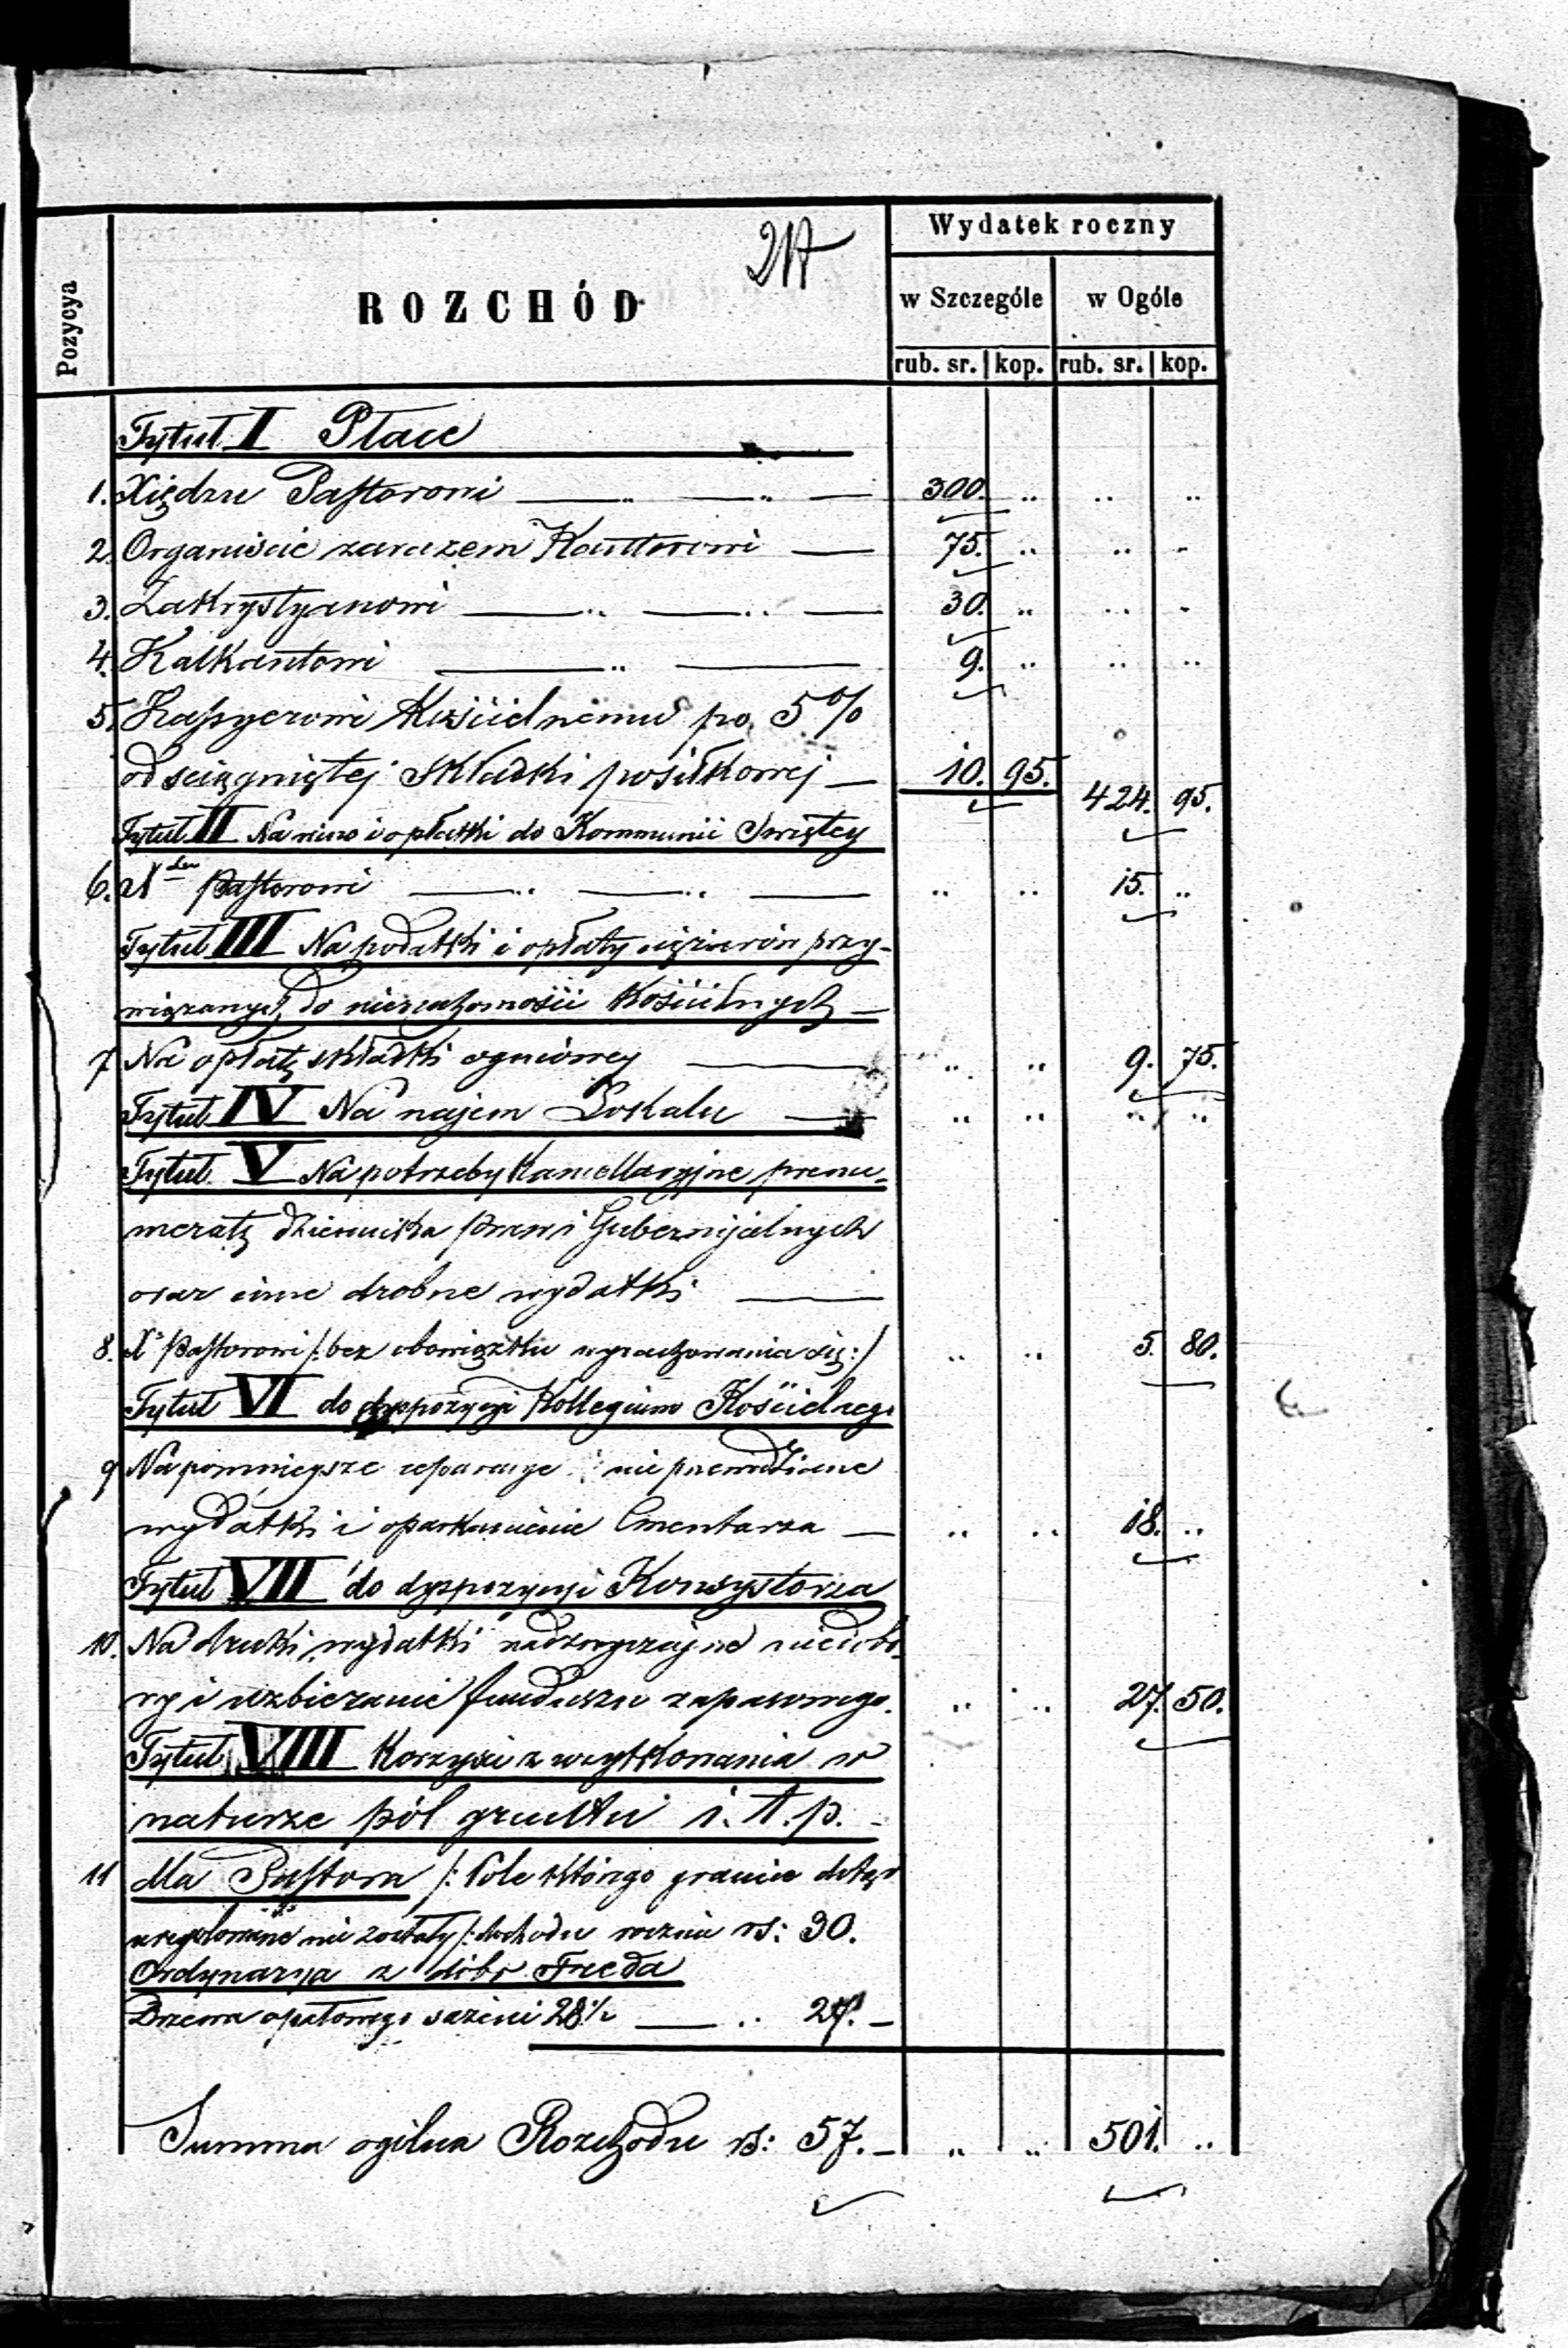 Wydatek roczny
217
Pozycya
ROZCHÓD
w Szczególe w Ogóle
rub. sr. kop. rub. sr. kop.
Tytuł I Płace
1. Xiędzu Pastorowi 300. .. .. ..
2. Organiście zarazem Kantorowi 75. .. .. ..
3. Zakrystyanowi 30. .. .. ..
4. Kalkantowi 9. .. .. ..
5. Kassyerowi Kościelnemu po 5%
od sciągniętej składki posiłkowej 10. 95. 424. 95.
Tytuł II Na wino i opłatki do Kommunii Swiętey
6. Xdzu Pastorowi .. .. 15. ..
Tytuł III Na podatki i opłaty ciężarów przy-
wiązanych do nieruchomości Kościelnych
7 Na opłatę składki ogniowey .. .. 9. 75.
Tytuł IV Na najem Lokalu .. .. .. ..
Tytuł V Na potrzeby Kancellaryjne prenu-
meratę dziennika praw i Gubernijalnych
oraz inne drobne wydatki
8. X Pastorowi /: bez obowiązku wyrachowania się :/ .. .. 5. 80.
Tytuł VI do dyspozycyi Kollegium Kościelnego
9 Na pomniejsze reparacye i nie przewidziane
wydatki i oparkanienie Cmentarza .. .. 18. ..
Tytuł VII do dyspozycyi Konsystorza
10. Na druki, wydatki nadzwyczajne niedobo-
ry i uzbieranie funduszu zapasowego. .. .. 27. 50.
Tytuł VIII Korzyści z użytkowania w
naturze pól gruntu i. t. p.
11 dla Pastora /: Pole którego granice dotąd
uregulowane nie zostały /: dochodu rocznie rs: 30.
Ordynarya z dóbr Freda
Drzewa opałowego sążeni 28½ .. 27.
Summa ogólna Rozchodu rs: 57. .. .. 501. ..